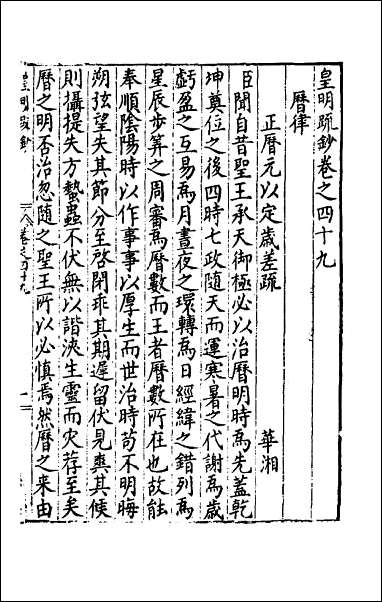 皇明疏鈔卷之四十九
曆律
正曆元以定歲差疏 華湘
臣聞自昔聖王承天御極必以治曆明時爲先蓋乾
坤奠位之後四時七政隨天而運寒暑之代謝爲歲
虧盈之互易爲月晝夜之環轉爲日經緯之錯列爲
星辰步算之周審爲曆數而王者曆數所在也故能
奉順陰陽時以作事事以厚生而世治時苟不明晦
朔弦望失其節分至啓閉乖其期遲留伏見爽其候
則攝提失方蟄蟲不伏無以諧浹生靈而灾荐至矣
曆之明否治忽隨之聖王所以必慎焉然曆之来由
皇明疏鈔 卷之四十九 一